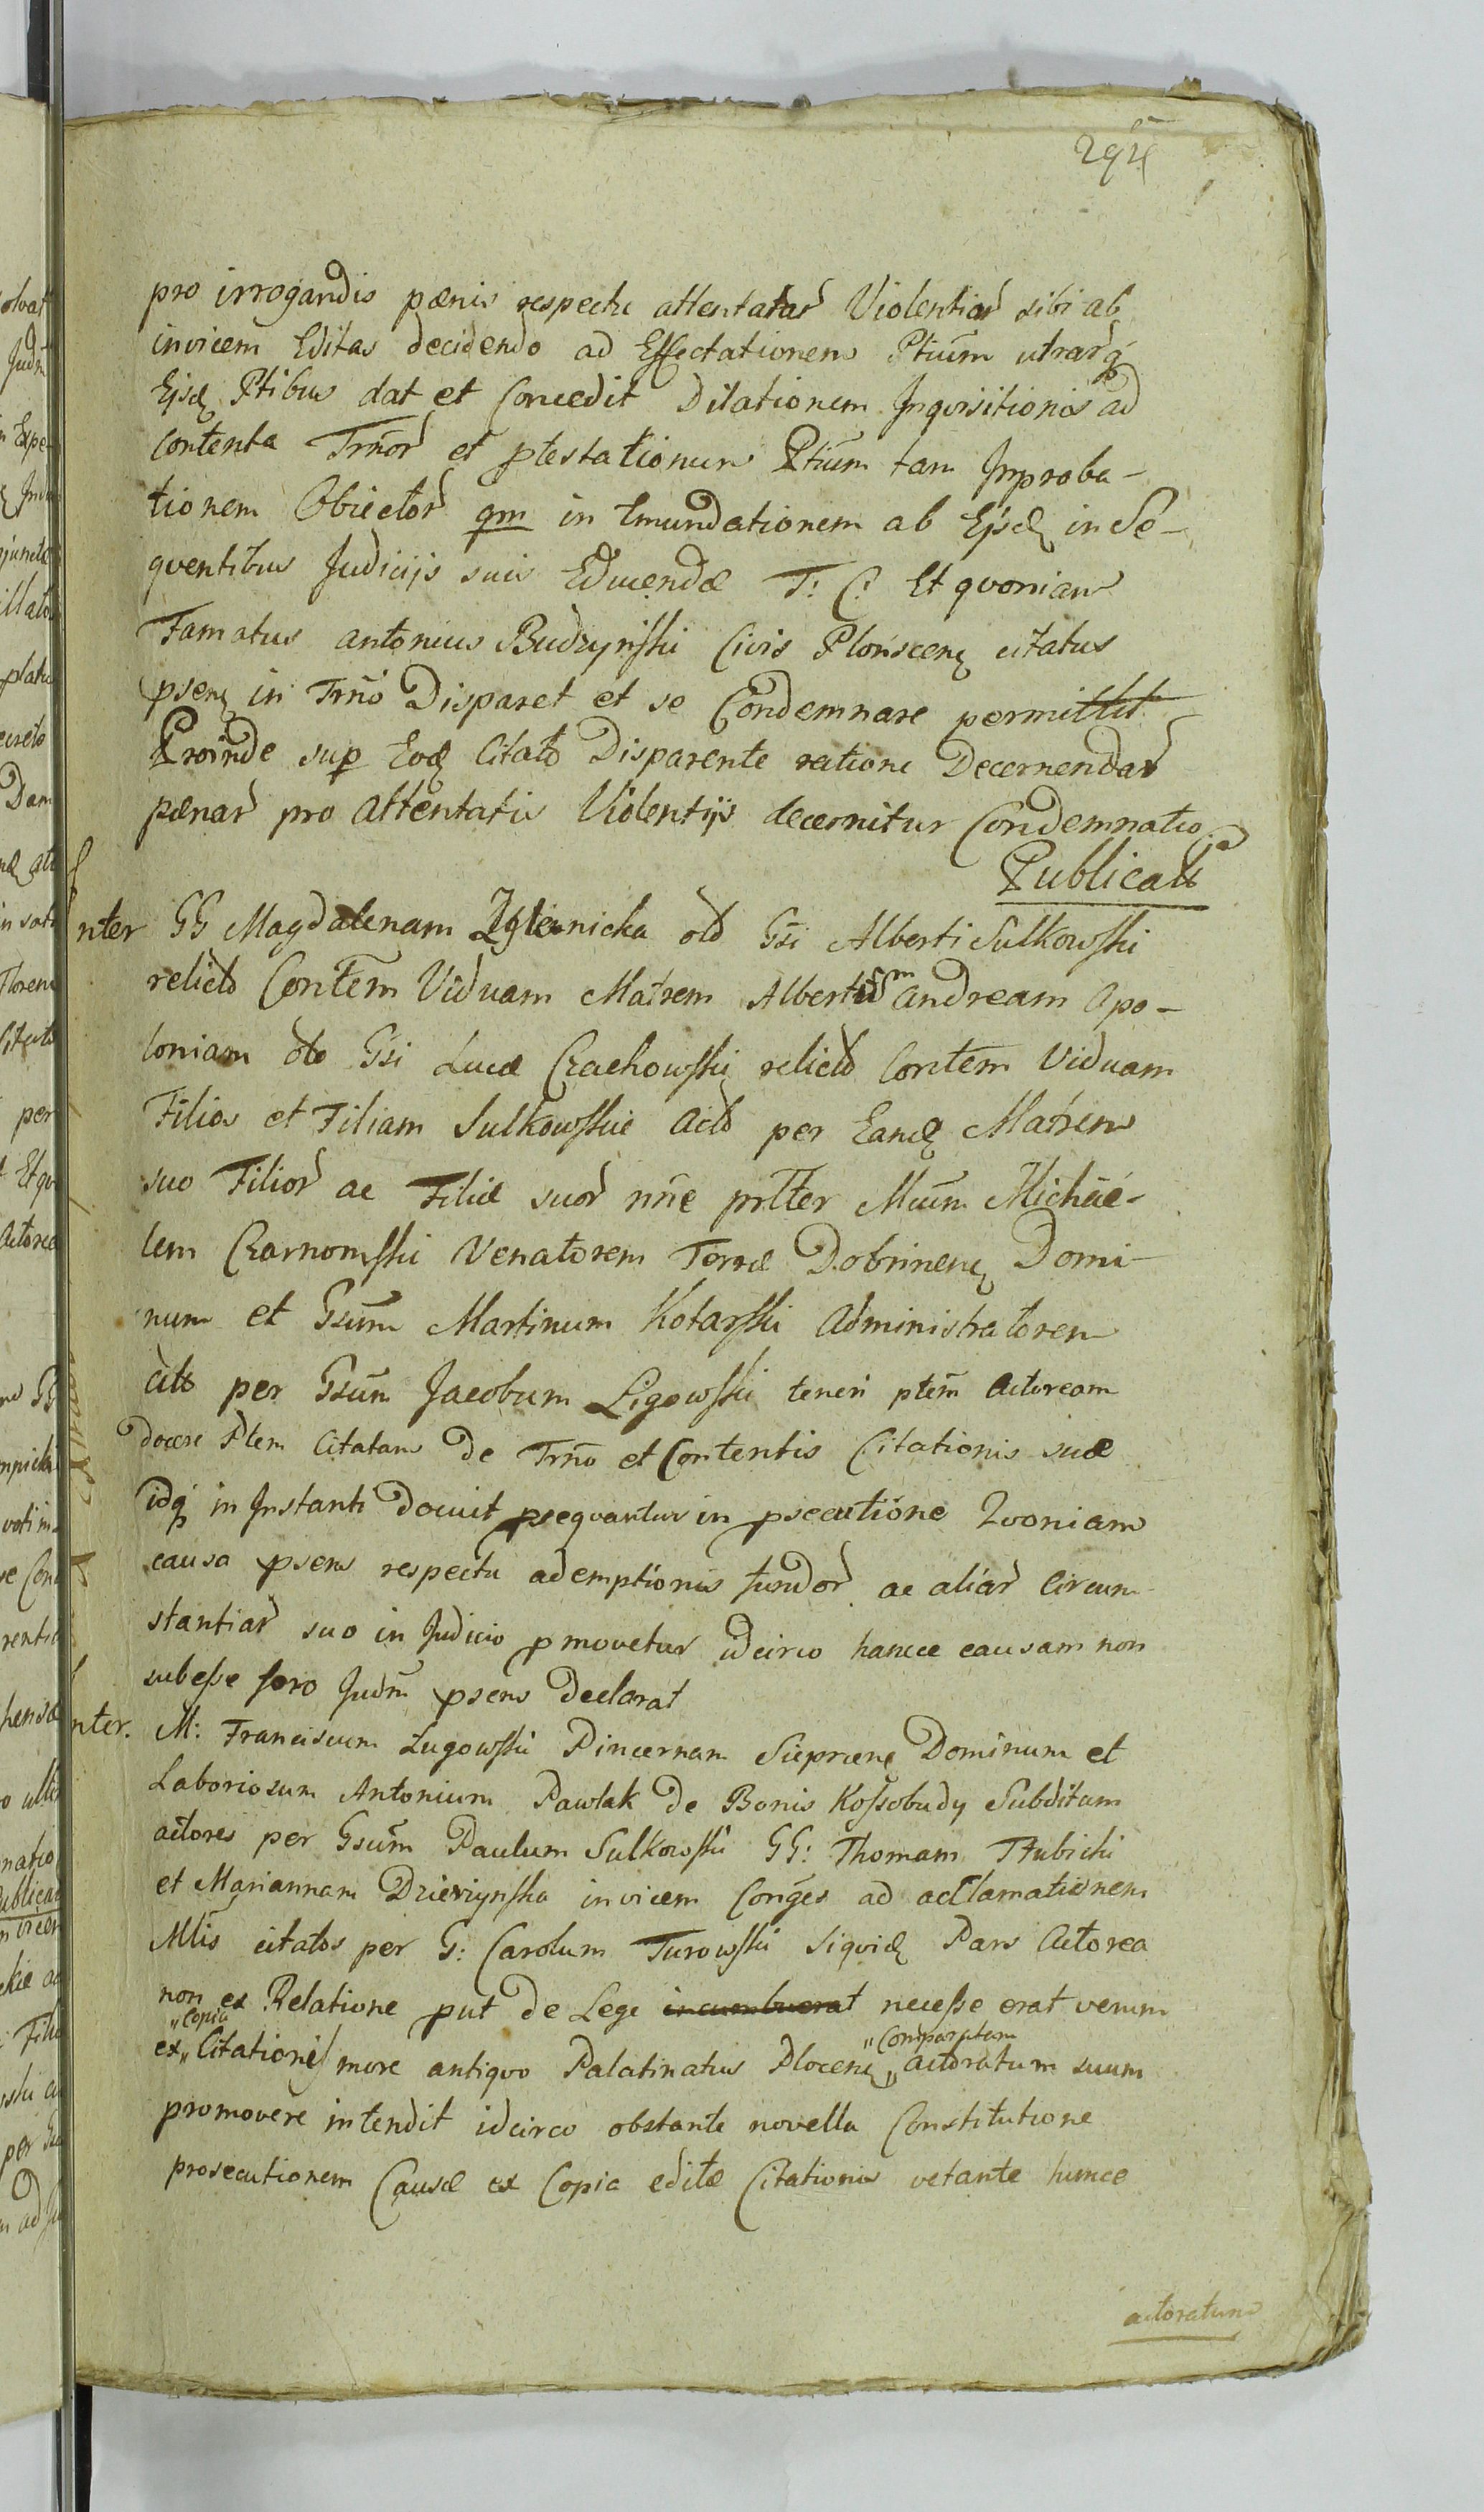 294
pro irrogandis pænis respectu attentatar Violentiar sibi ab
invicem Editas decidendo ad Effectationem Ptium utrarq
Ejsd Ptibus dat et Concedit Dilationem Inqvisitionis ad
contenta Trnor et ptestationum Ptium tam Improba-
tionem Obiector qm in Emundationem ab Ejsd in Se-
qventibus Judicijs suis Educendæ T: C: Et qvoniam
Famatus antonius Budzynski Civis Plonscen citatus
psens in Trno Disparet et se Condemnare permittit
Proinde sup Eod Citato Disparente ratione Decernendar
pænar pro attentatis Violentijs decernitur Condemnatio
Publicat
Inter GG Magdalenam Zglenicka old Gsi Alberti Sulkowski
relictb Contem Viduam Matrem Albertum Andream Apo-
loniam olb Gsi Lucæ Czachowski relictb Contem Viduam
Filios et Filiam Sulkowskie actb per Eand Matrem
suo Filior ac Filiæ suor nne prtter Mcum Michae-
lem Czarnomski Venatorem Terræ Dobrinens Domi-
num et Gsum Martinum Kotarski Administratorem
citb per Gsum Jacobum Ligowski teneri ptem Actoream
docere Ptem Citatam de Trno et Contentis Citationis suæ
idq in Instanti docuit pseqvantur in psecutione Qvoniam
causa psens respectu ademptionis fundor ac aliar Circum-
stantiar suo in Judicio pmovetur idcirco hancce causam non
subesse foro Judm psens Declarat
Inter. M: Franciscum Lugowski Pincernam Sieprcens Dominum et
Laboriosum Antonium Pawlak de Bonis Kossobudy Subditum
actores per Gsum Paulum Sulkowski GG: Thomam Tłubicki
et Mariannam Dzierzynska invicem Conges ad acclamationem
Mlis citatos per G: Carolum Turowski Siqvid Pars Actorea
non ex Relatione put de Lege incumbuerat necesse erat verum
"Copia "Comparatum
ex" Citationis more antiqvo Palatinatus Plocens" actoratum suum
promovere intendit idcirco obstante novella Constitutione
prosecutionem Causæ ex Copia editæ Citationis vetante huncce
actoratum